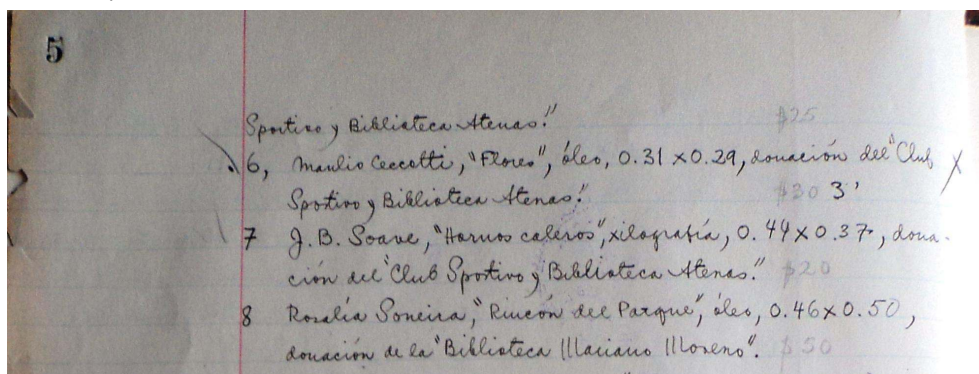 5
Sportivo y Biblioteca Atenas." $25
6, Manlio Ceccotti, "Flores", óleo, 0.31 x 0.29, donación del "Club X
Sportivo y Biblioteca Atenas." $30 3'
7 J. B. Soave, "Hornos caleros", xilografía, 0.44 x 0.37, dona-
ción del "Club Sportivo y Biblioteca Atenas." $20
8 Rosalía Soneira, "Rincón del Parque", óleo, 0.46 x 0.50,
donación de la "Biblioteca Mariano Moreno". $50